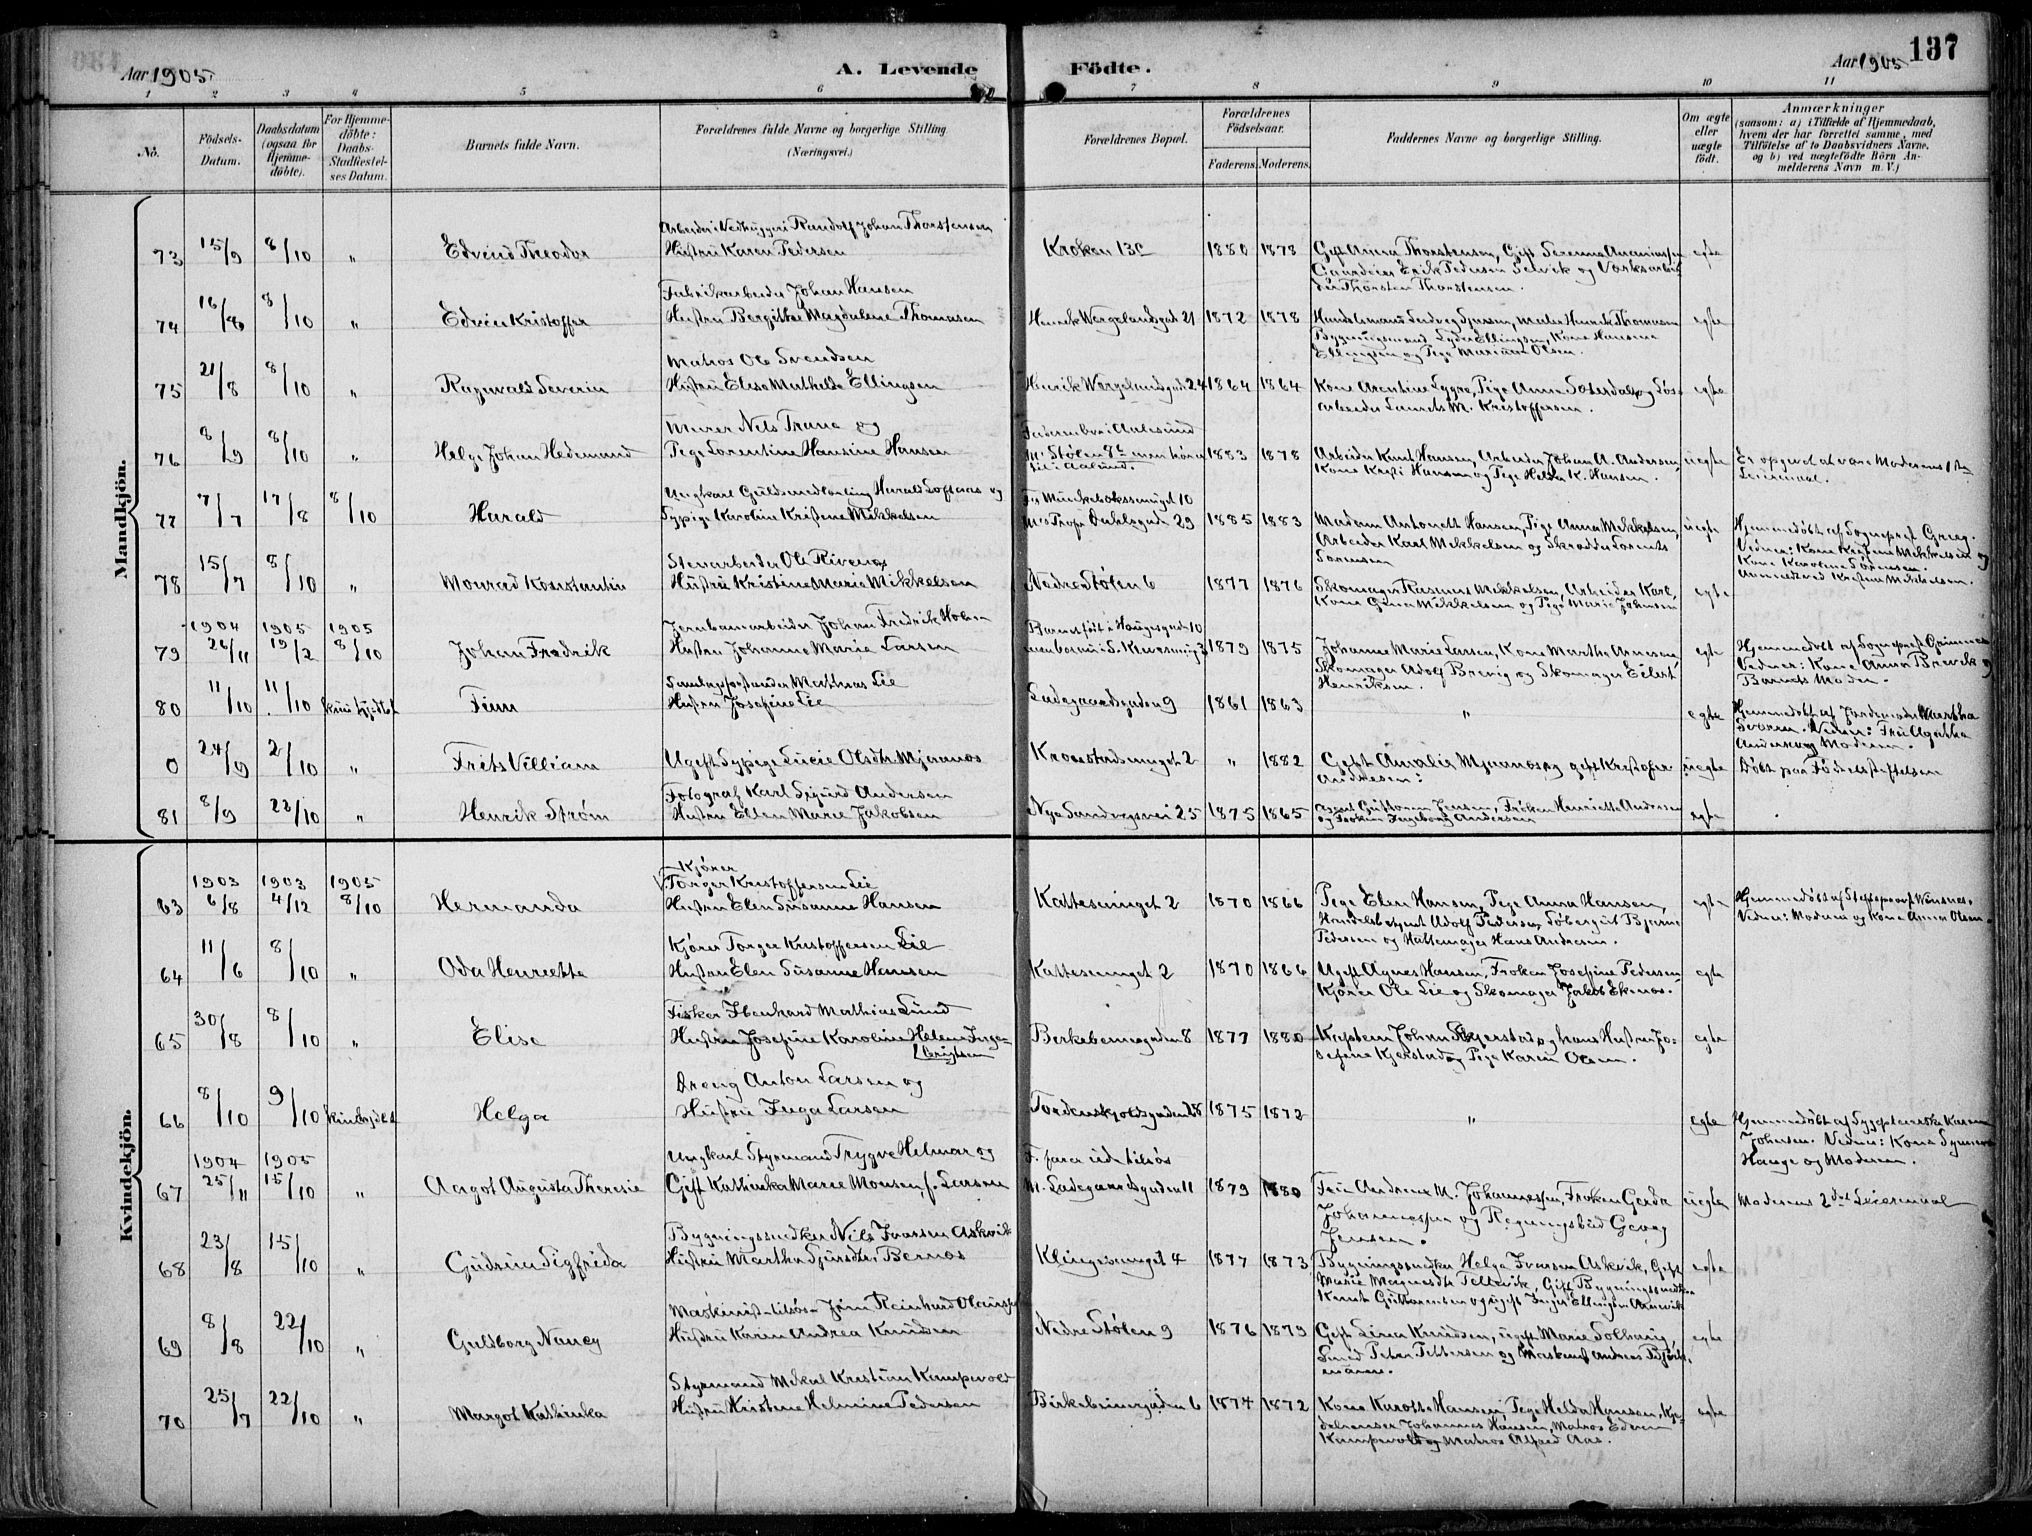 Aar 1905
A. Levende Födte.
Aar 1905
137
1 2 3 4 5 6 7 8 9 10 11
No.
Födsels-Datum.
Daabsdatum (ogsaa for Hjemme-döbte).
For Hjemme-döbte: Daabs-Stadfæstel-ses Datum.
Barnets fulde Navn.
Forældrenes fulde Navne og borgerlige Stilling.
(Næringsvei.)
Forældrenes Bopæl.
Forældrenes Födselsaar.
Faderens. Moderens.
Faddernes Navne og borgerlige Stilling.
Om ægte eller uægte födt.
Anmærkninger
(saasom: a) i Tilfælde af Hjemmedaab, hvem der har forrettet samme, med Tilföielse af to Daabsvidners Navne, og b) ved uægtefödte Börn An-melderens Navn m. V.)
Mandkjön.
73 15/9 8/10 " Edvind Theodor
Randolf Johan Thorstensen
Hustru Karen Pedersen
Kroken 13c 1880 1878
Gift Anna Thorstensen, Gift Serenne
Erik Pedersen Selvik og
Thorsten Thorstensen. egte
74 16/8 8/10 " Edvin Kristoffer
Fabrikarbeider Johan Hansen
Hustru Bergitte Magdalene Thomasen
Henrik Wergelandsgt 21 1872 1878
Maler Henrik Thomasen
Ellingsen, Kone Hansine
Ellingsen og Pige Marianne Olsen. egte
75 21/8 8/10 " Ragnvald Severin
Matros Ole Svendsen
Hustru Elise Mathilde Ellingsen
Henrik Wergelandsgt 24 1864 1864
Kone Arentine Lygre, Pige Anna Sæterdal og Løs-
arbeider Laurits M. Kristoffersen. egte
76 8/9 8/10 " Helge Johan Hedemand
Murer Nils Trane og
Pige Lorentine Hansine Hansen
Faderen bor i Aalesund
M. Stølen 8c men hører
til i Aalesund. 1883 1878
Arbeider Knut Hansen, Arbeider Johan A. Andersen,
Kone Kristi Hansen og Pige Helda K. Hansen. uegte
Er opgivet at være Moderens 1ste
Leiermaal.
77 7/7 17/8 8/10 Harald
Ungkarl Guldsmedlærling Harald Loftaas og
Sypige Karoline Kristine Mikkelsen
F. Munkeboksmuget 10
M. Prof. Dahlsgade 29 1885 1883
Madam Antonett Hansen, Pige Anna Mikkelsen,
Arbeider Karl Mikkelsen og Skrædder Lorents
Sørensen uegte
Hjemmedøbt af Sognepræst Greeg.
Vidner: Kone Kristine Mikkelsen og
Kone Karoline Sørensen.
Anmeldt ved Kristine Mikkelsen.
78 15/7 8/10 " Monrad Konstantin
Stenarbeider Ole Rivenes
Hustru Kristine Marie Mikkelsen
Nedre Stølen 6 1877 1876
Skomager Rasmus Mikkelsen, Arbeider Karl,
Kone Gina Mikkelsen og Pige Marie Johnsen egte
1904 1905 1905
79 26/11 19/2 8/10 Johan Fredrik
Jernbanearbeider Johan Fredrik
Hustru Johanne Marie Larsen
Barnet født i Haugesund 10
1879 1875
Johanne Marie Larsen, Kone Martha Arnesen,
Skomager Adolf Brevig og Skomager Eilert
Henriksen. egte
Hjemmedøbt af Sognepræst
Vidner: Kone Anna Brevik og
Barnets Moder.
80 11/10 11/10 kun hjdbt Finn
Mathias Lie
Hustru Josefine Lie
Ladegaardsgaden 9 1861 1863 " egte
Hjemmedøbt af Jordemoder Martha
Vidner: Fru Agatha
Andersen og Moderen.
0 24/9 2/10 " Frits Villiam
Ugift Sypige Lucie Olsdtr. Mjanæs
Kroestadsmuget 2 " 1882
Gift Amalie Mjaanes og gift Kristofer
Andresen: uegte
Døbt paa Fødselsstiftelsen
81 8/9 22/10 " Henrik Strøm
Fotograf Karl Sigurd Andersen
Hustru Ellen Marie Jakobsen
Nye Sandvigsvei 25 1875 1865
Agent Guttorm Jensen, Frøken Henriette Andersen
og Frøken Ingeborg Andersen egte
Kvindekjön.
1903 1903 1905
63 6/8 4/12 8/10 Hermanda
Kjører
Torger Kristoffersen Lie
Hustru Elen Susanne Hansen
Kattesmuget 2 1870 1866
Pige Elen Hansen, Pige Anna Hansen,
Adolf Pedersen, Løbergut Bjarne
Pedersen og Hattemager Hans Andresen. egte
Hjemmedøbt af
Vidner: Moderen og Kone Anna Olsen.
64 11/6 8/10 " Oda Henriette
Kjører Torger Kristoffersen Lie
Hustru Elen Susanne Hansen
Kattesmuget 2 1870 1866
Ugift Agnes Hansen, Frøken Josefine Pedersen
Kjører Ole Lie og Skomager Jakob Ekenæs. egte
65 30/8 8/10 " Elise
Fisker Ibenhard Mathias Lund
Hustru Josefine Karoline Helene Inge-
brigtsen
Birkebeinergaden 8 1877 1880
Kaptein Johan Kjerstad og hans Hustru Jo-
sefine Kjerstad og Pige Karen Olsen. egte
66 8/10 9/10 kun hjdbt Helga
Dreng Anton Larsen og
Hustru Inga Larsen
Tordenskjoldsgaden 28 1875 1872 " egte
Hjemmedøbt af Sygepleierske Karen
Johansen. Vidner: Kone Synneve
Hauge og Moderen.
1904 1905
67 25/11 15/10 " Aagot Augusta Theresie
Ungkarl Styrmand Trygve Helmar og
Gift Kathinka Marie Monsen, f. Larsen
F. farer udentilsøs
M. Ladegaardsgaden 11 1879 1880
Fru Andrene M. Johannesen, Frøken Gerda
Johannesen og Regningsbud Georg
Jensen. uegte
Moderens 2det Leiermaal
68 23/8 15/10 " Gudrun Sigfrida
Bygningssnedker Nils Ivarsen Askvik
Hustru Martha Sjursdtr. Bernæs
Klingesmuget 4 1877 1873
Bygningssnedker Helge Ivarsen Askvik, Gift
Marie Magnesdtr. Tellevik, Gift Bygningssnedker
Knut Guttormsen og ugift Inger Ellingsen egte
69 8/8 22/10 " Guldborg Nancy
Maskinist tilsøs Jim Reinhard
Hustru Karen Andrea Knudsen
Nedre Stølen 9 1876 1879
Gift Lina Knudsen, ugift Marie Solhaug,
Smed Peter Pettersen og Maskinist Andreas egte
70 25/7 22/10 " Margot Kathinka
Styrmand Mikal Kristian Kampevold
Hustru Kristine Helmine Pedersen
Birkebeinergaden 6 1874 1872
Kone Karoth Hansen, Pige Helda Hansen, Kje-
delrenser Johannes Hansen, Matros Edvin
Kampevold og Matros Alfred Aas. egte